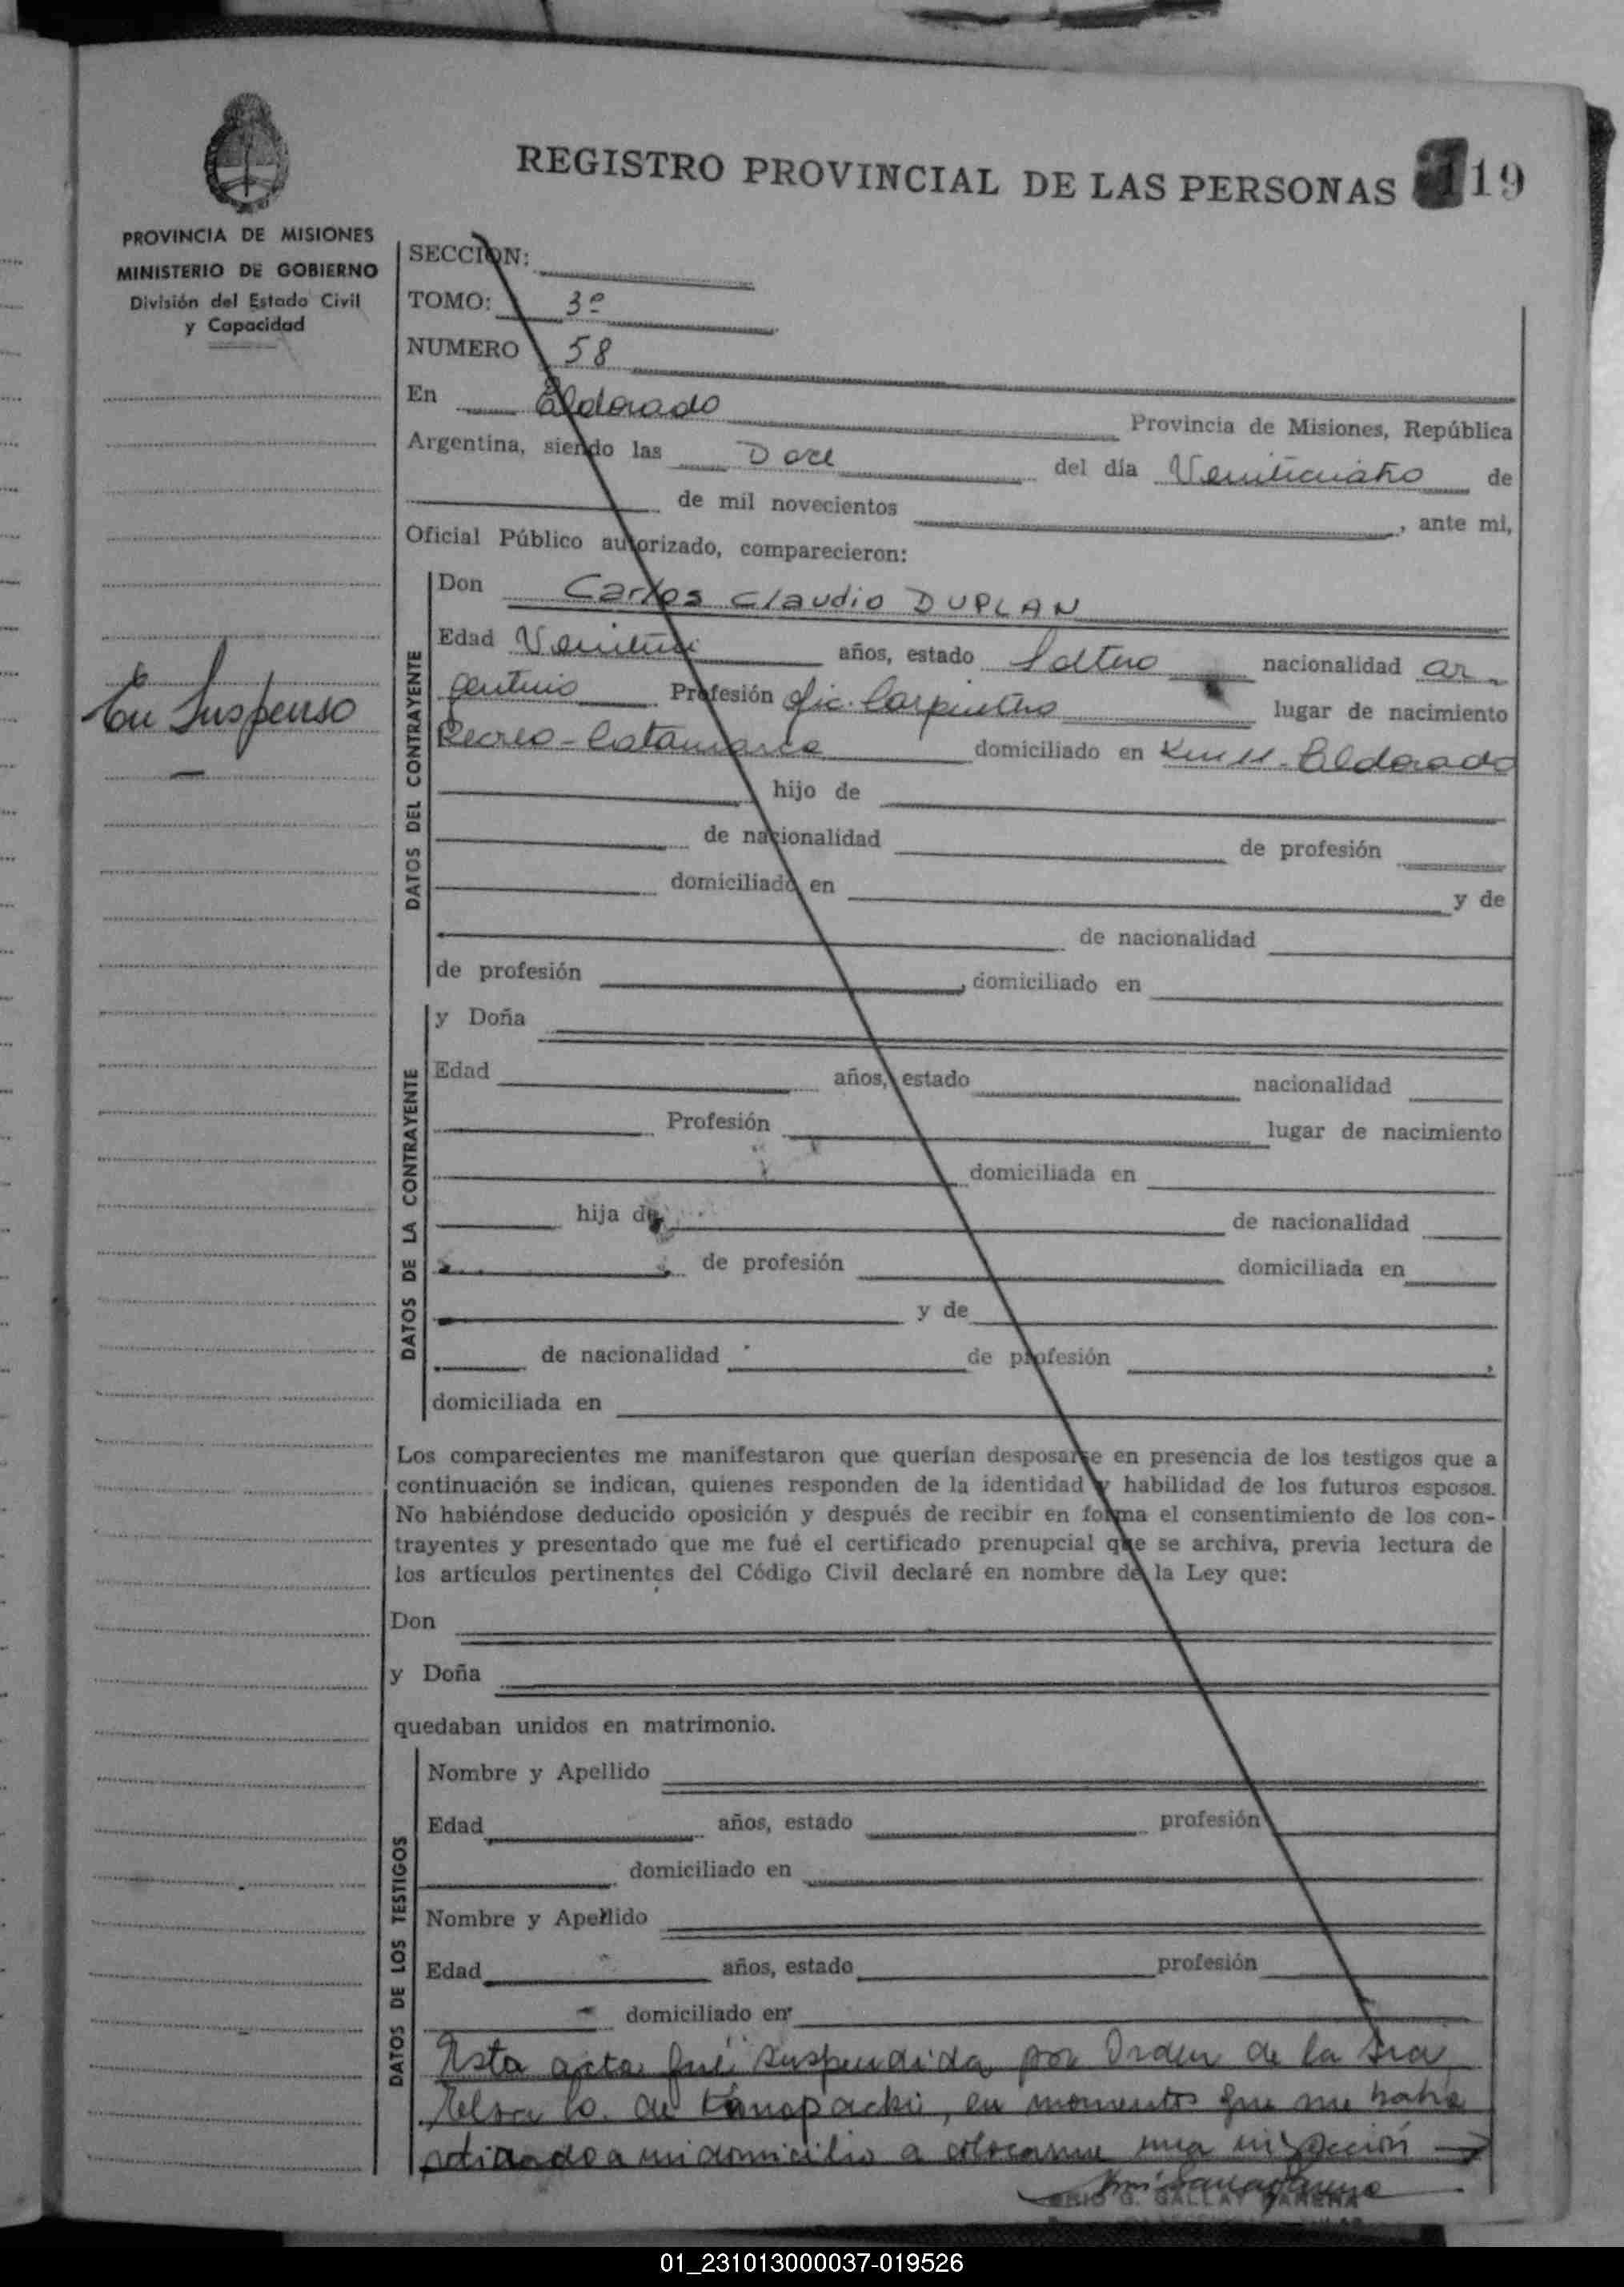 REGISTRO PROVINCIAL DE LAS PERSONAS 119
PROVINCIA DE MISIONES
MINISTERIO DE GOBIERNO
División del Estado Civil
y Capacidad
SECCION:
TOMO: 3º
NUMERO 58
En Eldorado Provincia de Misiones, República
Argentina, siendo las Doce del día Veinticuatro de
de mil novecientos , ante mi,
Oficial Público autorizado, comparecieron:
DATOS DEL CONTRAYENTE
Don Carlos Claudio DUPLAN
Edad años, estado Soltero nacionalidad ar-
gentino Profesión Ofic. Carpintero lugar de nacimiento
Recreo - Catamarca domiciliado en Km 11 - Eldorado
En Suspenso
hijo de
de nacionalidad de profesión
domiciliado en y de
de nacionalidad
de profesión , domiciliado en
DATOS DE LA CONTRAYENTE
y Doña
Edad años, estado nacionalidad
Profesión lugar de nacimiento
domiciliada en
hija de de nacionalidad
de profesión domiciliada en
y de
de nacionalidad de profesión ,
domiciliada en
Los comparecientes me manifestaron que querían desposarse en presencia de los testigos que a
continuación se indican, quienes responden de la identidad y habilidad de los futuros esposos.
No habiéndose deducido oposición y después de recibir en forma el consentimiento de los con-
trayentes y presentado que me fué el certificado prenupcial que se archiva, previa lectura de
los artículos pertinentes del Código Civil declaré en nombre de la Ley que:
Don
y Doña
quedaban unidos en matrimonio.
DATOS DE LOS TESTIGOS
Nombre y Apellido
Edad años, estado profesión
domiciliado en
Nombre y Apellido
Edad años, estado profesión
domiciliado en
Esta acta fué suspendida por Orden de la Sra
Elsa de Kanopacki, en momentos que me había
retirado a mi domicilio a colocarme una inyección
G. GALLAY
01_231013000037-019526